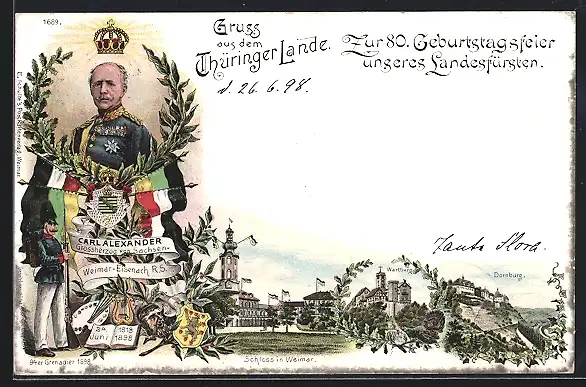 1689.
Gruss
aus dem
Thüringer Lande.
d. 26.6.98.
Zur 80. Geburtstagsfeier
unseres Landesfürsten.
CARL ALEXANDER
Grossherzog von Sachsen-
Weimar-Eisenach K.S.
24. 1818
Juni 1898
94er Grenadier 1898
Schloss in Weimar.
Wartburg
Dornburg.
Tante Flora.